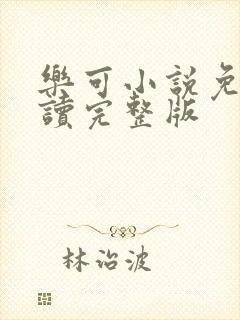 樂可小說免
讀完整版
林治波